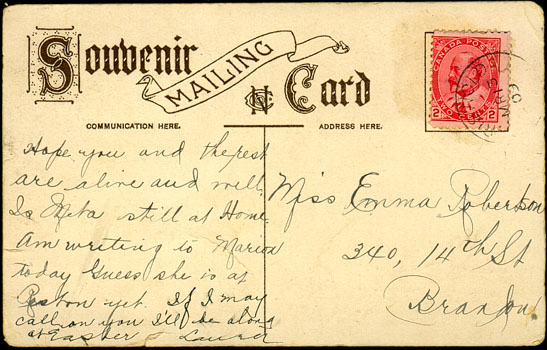 Souvenir
MAILING
Card
COMMUNICATION HERE.
ADDRESS HERE.
CANADA POSTAGE
2 CENTS 2
Hope you and the rest
are alive and well.
Is Meta still at Home
Am writing to Marion
today Guess she is at
yet. If I may
call on you I'll be along
at Easter Laura
Miss Emma Robertson
340, 14th St
Brandon